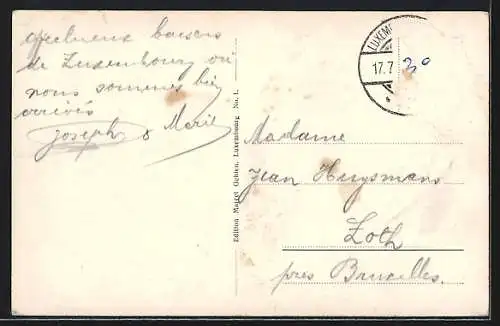 affectueux baisers
de Luxembourg où
nous sommes bien
arrivés
Joseph & Marie
Edition Marcel Gehlen, Luxembourg No. 1.
LUXEM
17.7
20
Madame
Jean Huysmans
Loth
près Bruxelles.